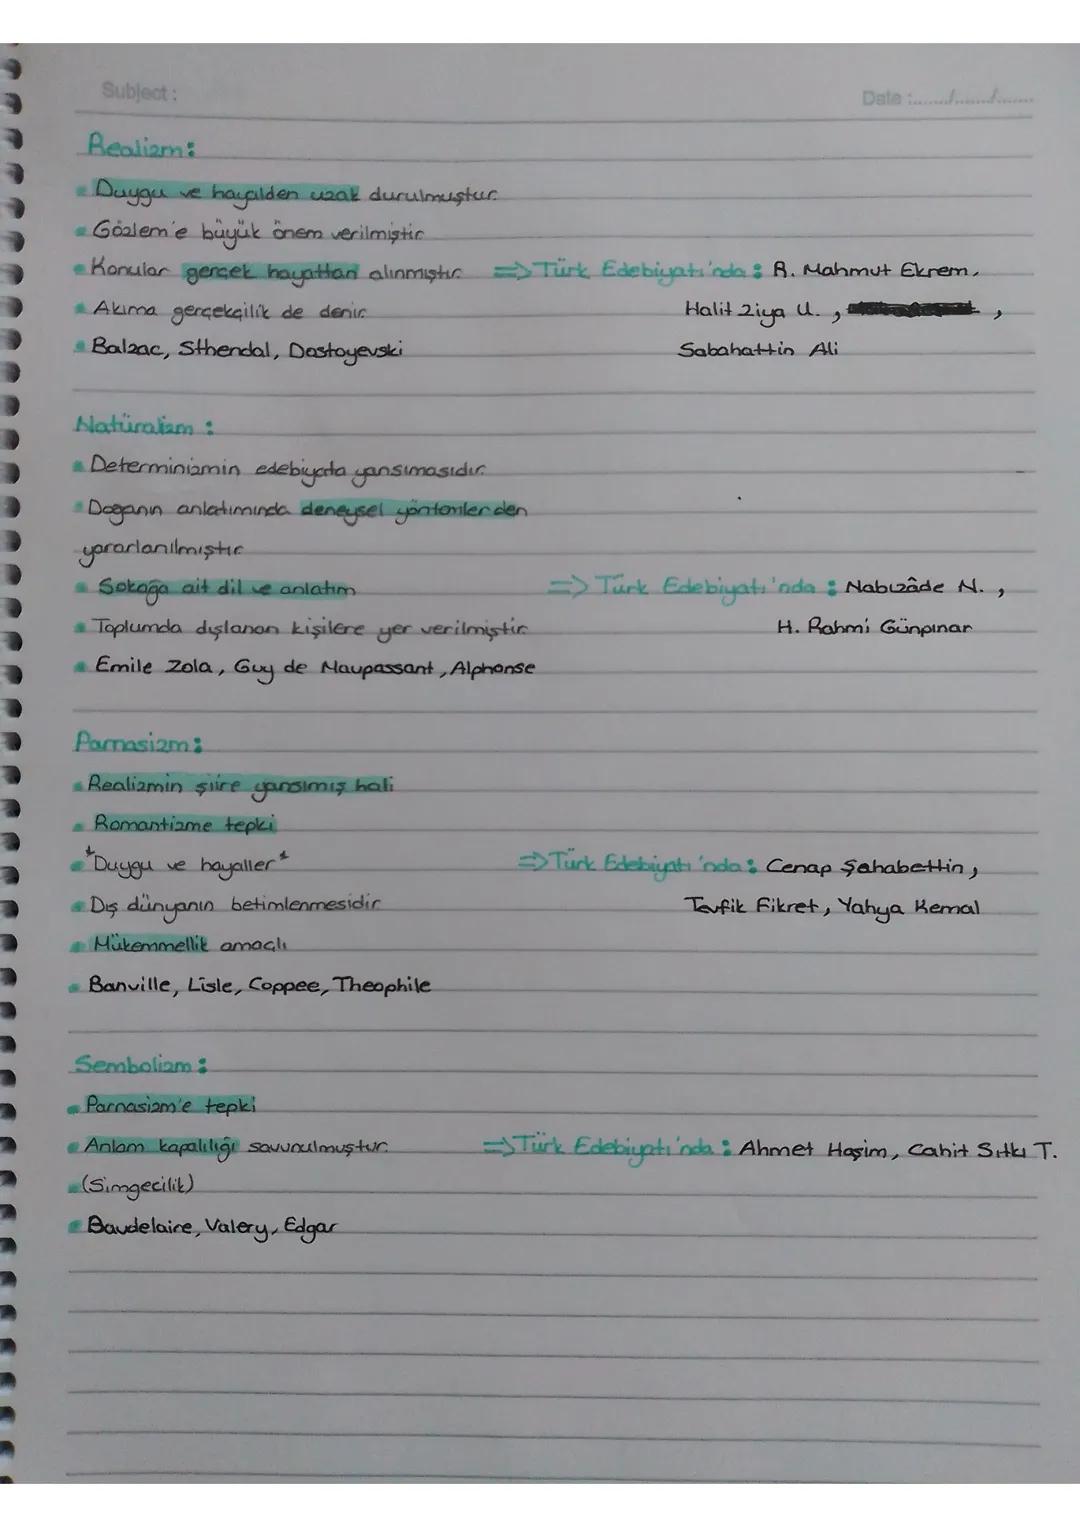 Subject :
Date :......./......./.......
Realizm:
Duygu ve hayalden uzak durulmuştur.
Gözlem'e büyük önem verilmiştir
Konular gerçek hayattan alınmıştır. => Türk Edebiyatı'nda : R. Mahmut Ekrem,
Akıma gerçekçilik de denir. Halit Ziya U. , ,
Balzac, Sthendal, Dostoyevski Sabahattin Ali
Natüralizm :
Determinizmin edebiyata yansımasıdır.
Doğanın anlatımında deneysel yöntemlerden
yararlanılmıştır
Sokağa ait dil ve anlatım => Türk Edebiyatı'nda : Nabızâde N. ,
Toplumda dışlanan kişilere yer verilmiştir. H. Rahmi Günpınar
Emile Zola, Guy de Maupassant, Alphonse
Parnasizm:
Realizmin şiire yansımış hali
Romantizme tepki
*Duygu ve hayaller* => Türk Edebiyatı'nda : Cenap Şahabettin,
Dış dünyanın betimlenmesidir Tevfik Fikret, Yahya Kemal
Mükemmellik amaçlı
Banville, Lisle, Coppee, Theophile
Sembolizm :
Parnasizm'e tepki
Anlam kapalılığı savunulmuştur. => Türk Edebiyatı'nda : Ahmet Haşim, Cahit Sıtkı T.
(Simgecilik)
Baudelaire, Valery, Edgar